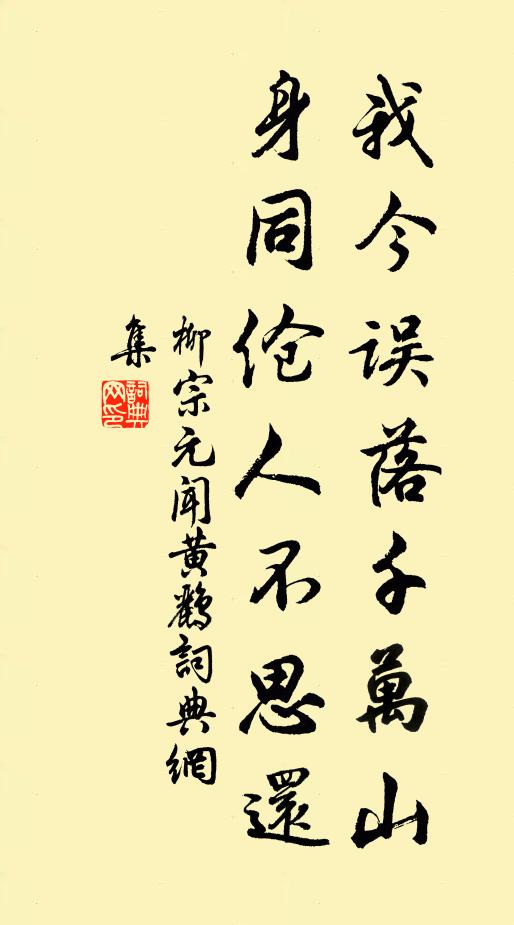 我今误落千萬山
身同伧人不思還
柳宗元聞黄鸝詞典網
集
詞典網印